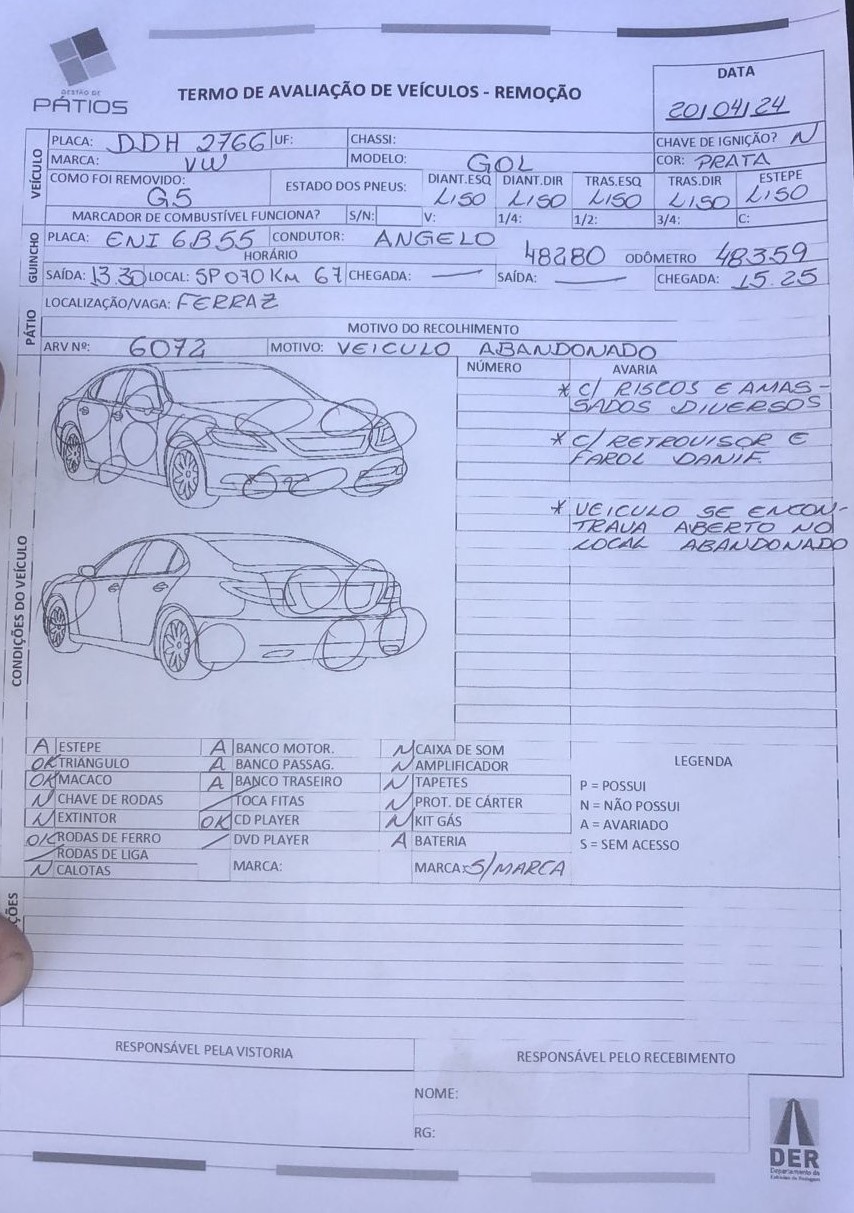 GESTÃO DE
PÁTIOS
TERMO DE AVALIAÇÃO DE VEÍCULOS - REMOÇÃO
DATA
20/04/24
VEÍCULO
PLACA: DDH 2766 UF: CHASSI: CHAVE DE IGNIÇÃO? N
MARCA: VW MODELO: GOL COR: PRATA
COMO FOI REMOVIDO: G5 ESTADO DOS PNEUS: DIANT.ESQ LISO DIANT.DIR LISO TRAS.ESQ LISO TRAS.DIR LISO ESTEPE LISO
MARCADOR DE COMBUSTÍVEL FUNCIONA? S/N: V: 1/4: 1/2: 3/4: C:
GUINCHO
PLACA: ENI 6B55 CONDUTOR: ANGELO
HORÁRIO 48280 ODÔMETRO 48359
SAÍDA: 13.30 LOCAL: SP070 KM 67 CHEGADA: — SAÍDA: — CHEGADA: 15.25
PÁTIO
LOCALIZAÇÃO/VAGA: FERRAZ
MOTIVO DO RECOLHIMENTO
ARV Nº: 6072 MOTIVO: VEICULO ABANDONADO
CONDIÇÕES DO VEÍCULO
NÚMERO AVARIA
* C/ RISCOS E AMAS-
SADOS DIVERSOS
* C/ RETROVISOR E
FAROL DANIF.
* VEICULO SE ENCON-
TRAVA ABERTO NO
LOCAL ABANDONADO
A ESTEPE A BANCO MOTOR. N CAIXA DE SOM
OK TRIÂNGULO A BANCO PASSAG. N AMPLIFICADOR
OK MACACO A BANCO TRASEIRO N TAPETES
N CHAVE DE RODAS / TOCA FITAS N PROT. DE CÁRTER
N EXTINTOR OK CD PLAYER N KIT GÁS
OK RODAS DE FERRO / DVD PLAYER A BATERIA
/ RODAS DE LIGA
N CALOTAS MARCA: MARCA: S/MARCA
LEGENDA
P = POSSUI
N = NÃO POSSUI
A = AVARIADO
S = SEM ACESSO
ÇÕES
RESPONSÁVEL PELA VISTORIA RESPONSÁVEL PELO RECEBIMENTO
NOME:
RG:
DER
Departamento de
Estradas de Rodagem